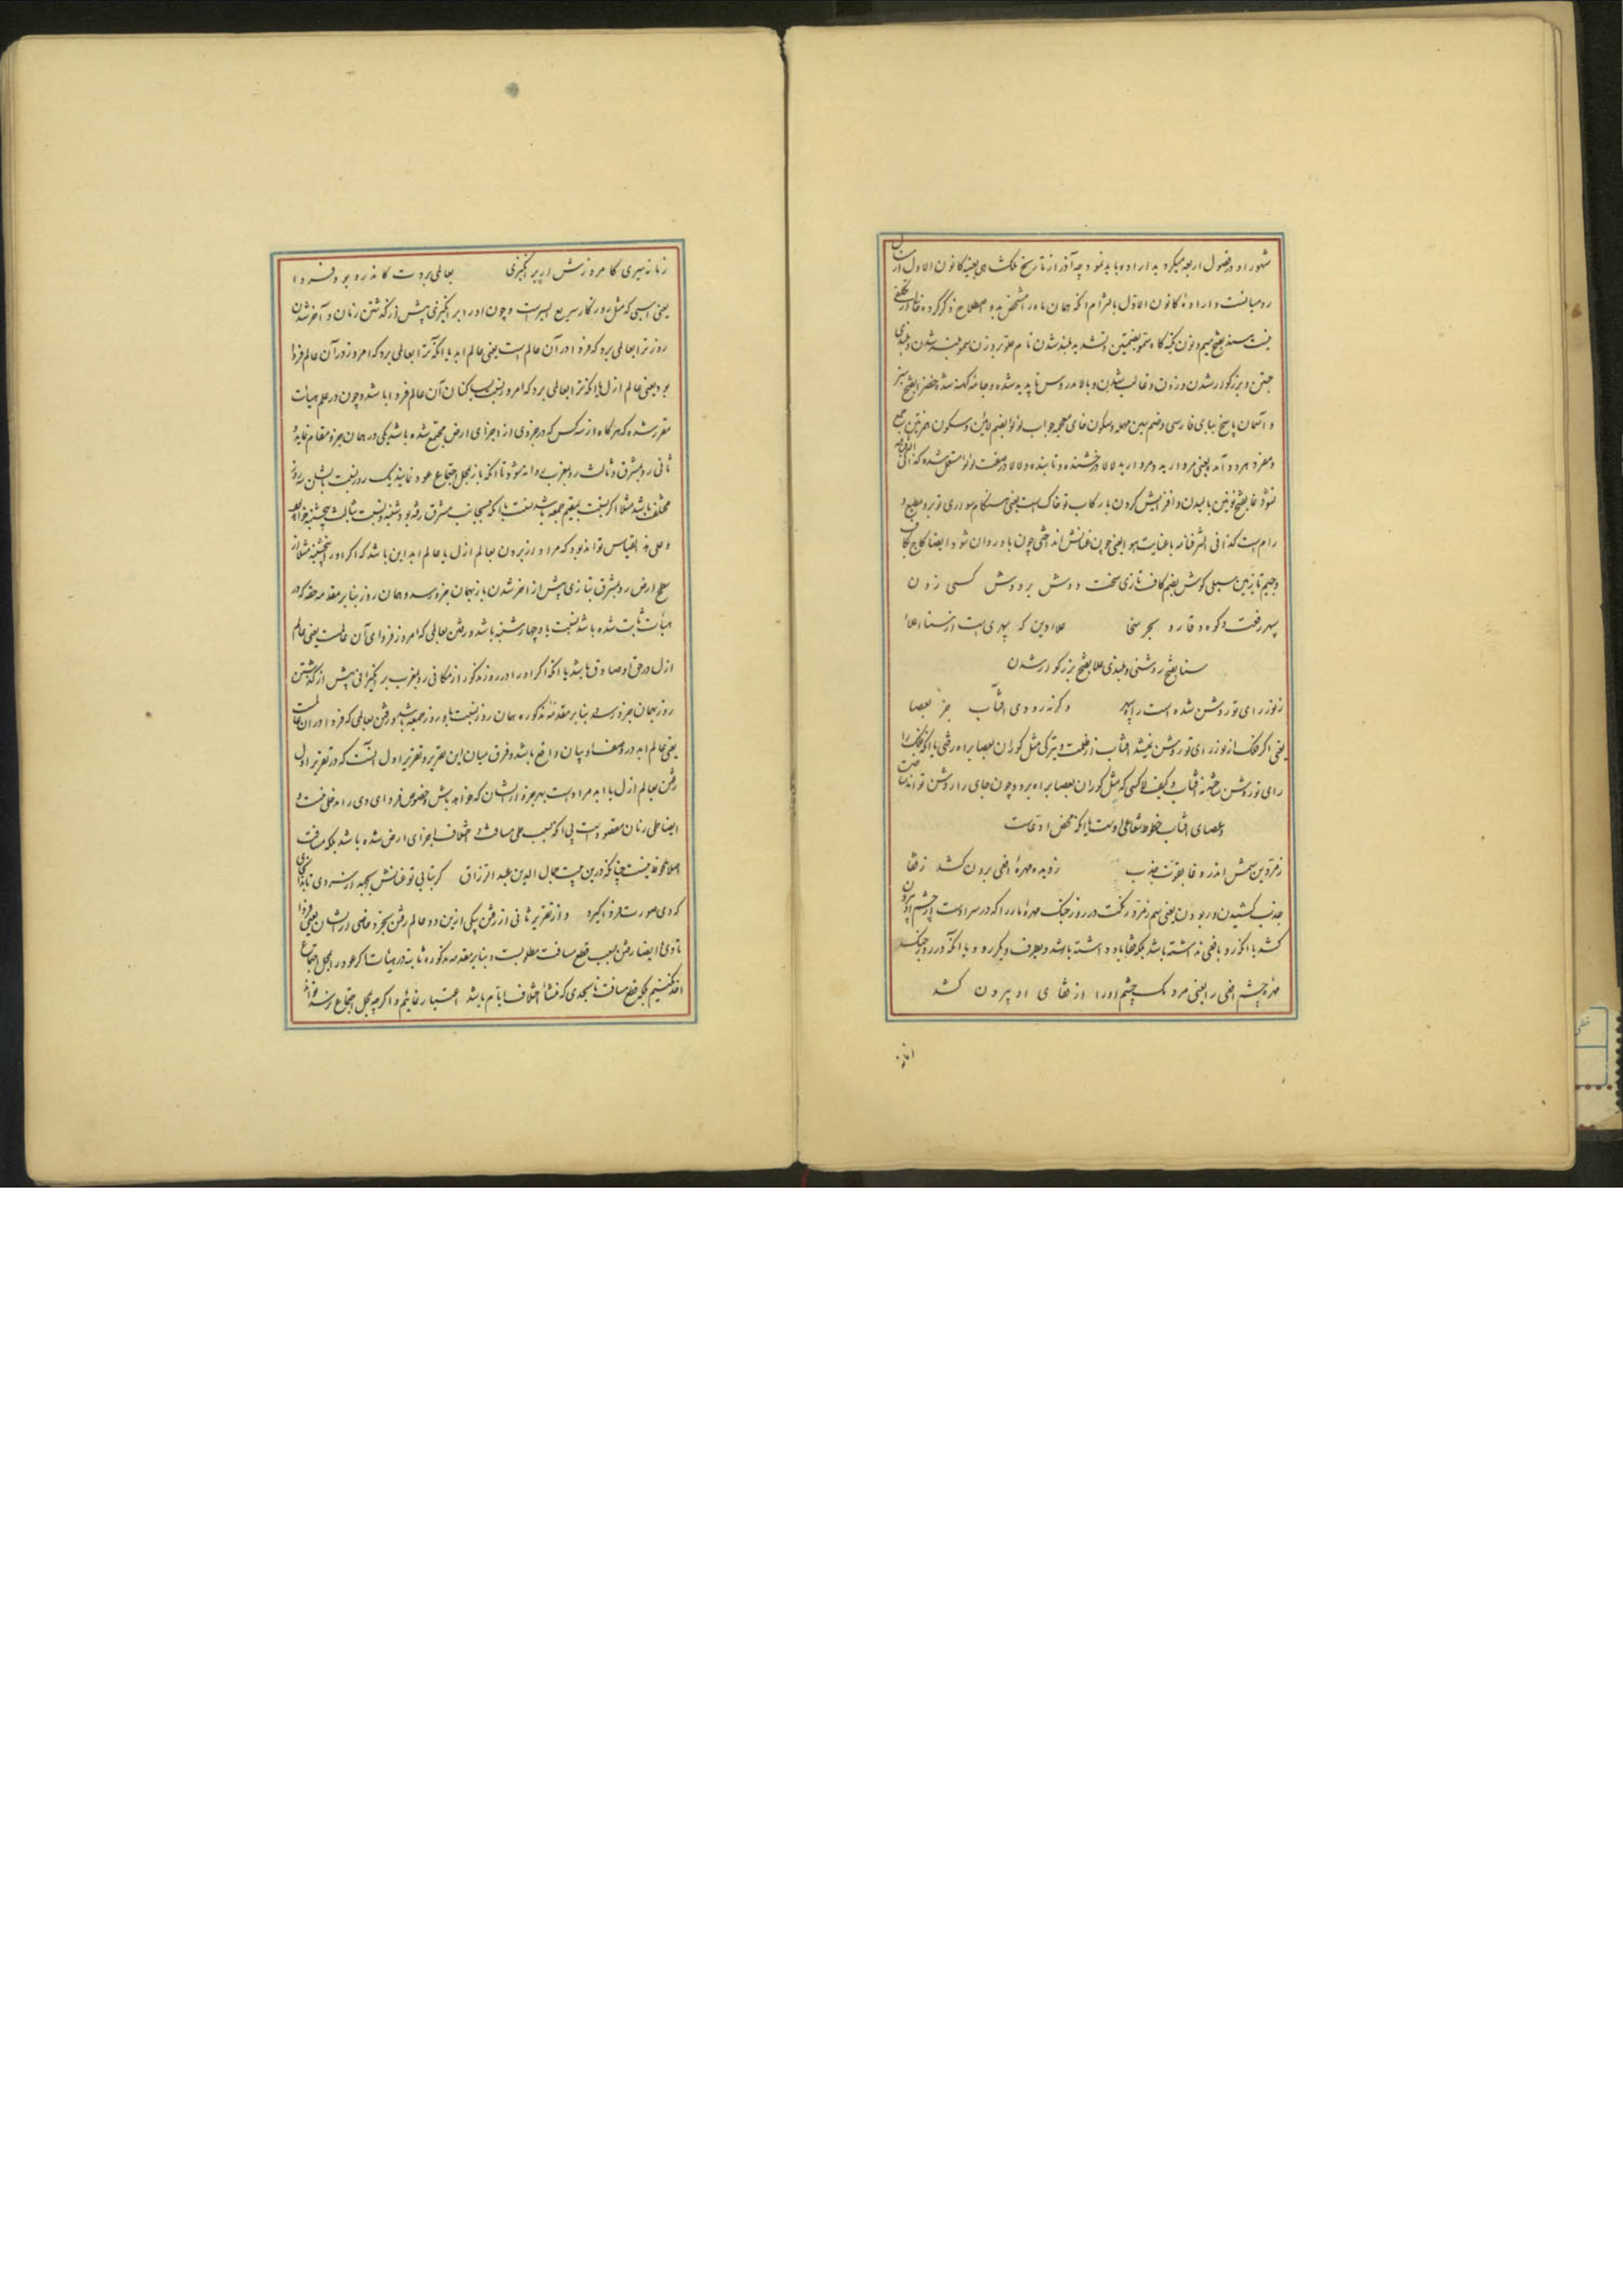 شهور او در فصول اربعه میکرد بد اراده باید نمود چه آذر از تاریخ ملکشاهی بعینه کانون الاول از سال
رومیانست و اراده کانون الاول بالتزام آنکه همان ماه را مشخص بدو اصطلاح ذکر کرده
بفتح میم و نون سمو بضمتین و تشدید بلند شدن نام علو بر وزن سمو بلند شدن و بلندی
جستن و بزرگوار شدن و زدن و غالب شدن و بالا مدروس ناپدید شده و جامه کهنه شده خضرا بفتح سبز
و آسمان پاسخ ببای فارسی و ضم سین مهمله و سکون خای معجمه جواب لؤلؤ بضم لامین و سکون همزتین جمع
و مفرد هر دو آمده یعنی مروارید و مروارید لالا درخشنده و تابنده و لالا در صفت لؤلؤ مستعمل شده کذا فی
نشو و نما بفتح نونین بالیدن و افزایش کردن با رکاب تو خاک است یعنی هنگام سواری تو برد مطیع و
رام است کذا فی الشرفنامه با عنایت هوا یعنی چون عنانش اندختی چون باد روان شود ایضا کاج بکاف
و جیم تازیین سیلی گوش بضم کاف تازی سخت دوش بر دوش کسی زدن
سپهر رفعت و کوه وقار و بحر سخا علاء دین که سپهریست از سنا و علا
سنا بفتح روشنی و بلندی علا بفتح بزرگوار شدن
ز نور رای تو روشن شده است راه سپهر وگرنه رودی آفتاب جز بعصا
یعنی اگر فلک از نور رای تو روشن نمیشد آفتاب از ظلمت و تیرگی مثل کوران بعصا براه رفتی یا آنکه فلک را
رای تو روشن ساخته نه آفتاب و کیف لا کسی که مثل کوران بعصا براه برود چون جای را روشن تواند ساخت
و عصای آفتاب خطوط شعاعی اوست یا آنکه محض ادعاست
زمردین سمش اندر وغا بقوت جذب ز دیده مهره افعی برون کشد ز قفا
جذب کشیدن و ربودن یعنی سم زمرد رنگت در روز جنگ مهره مار را که در سر اوست از چشم او بیرون
کشد با آنکه رو بافعی نداشته باشد بلکه قفا باو داشته باشد و بطرف دیگر رود یا آنکه در روز جنگ
مهره چشم افعی را یعنی مردمک چشم او را از قفای او بیرون کشد
زمانه سیری کامروزش ار برانگیزی بعالمی بردت کاندرو بود فردا
یعنی اسبی که مثل روزگار سریع السیر است و چون او را برانگیزی پیش از گذشتن زمان و آخر شدن
روز ترا بعالمی برد که فردا در آن عالم است یعنی عالم ابد یا آنکه ترا بعالمی برد که امروز در آن عالم فردا
بود یعنی عالم ازل یا آنکه ترا بعالمی برد که امروز نسبت بساکنان آن عالم فردا باشد و چون در علم هیأت
مقرر شده که هرگاه از سه کس که در جزوی از اجزای ارض مجتمع شده باشند یکی در همان جزو مقام نماید
ثانی رو بمشرق و ثالث رو بمغرب روانه شود تا آنکه باز بمحل اجتماع عود نمایند یک روز نسبت بایشان سه روز
مختلف باشد مثلا اگر نسبت بمقیم جمعه باشد نسبت بآنکه بجانب مشرق رفته بود شنبه و نسبت بثالث پنجشنبه خواهد بود
و علی هذا القیاس تواند بود که مراد از بردن بعالم ازل یا عالم ابد این باشد که اگر او را پنجشنبه مثلا از
سطح ارض رو بمشرق بتازی پیش از آخر شدن باز بهمان جزو رسد و همان روز بنابر مقدمه حقه که در
هیأت ثابت شده باشد نسبت باو چهارشنبه باشد و رفتن بعالمی که امروز فردای آن عالمست یعنی عالم
ازل در حق او صادق باشد یا آنکه اگر او را در روز مذکور از مکانی رو بمغرب برانگیزانی پیش از گذشتن
روز بهمان جزو رسد و بنابر مقدمه مذکوره همان روز نسبت باو روز جمعه باشد و رفتن بعالمی که فردا در آن عالمست
یعنی عالم ابد در وصف او بیان واقع باشد و فرق میان این تقریر و تقریر اول آنست که در تقریر اول
رفتن بعالم ازل یا ابد مراد است بهر جزو از ایشان که خواهد باش و خصوص فردای دی را مدخلی نیست و
ایضا طی زمان مقصود است بی آنکه بسبب طی مسافت و اختلاف اجزای ارض شده باشد بلکه مسافت
اصلا ملحوظ نیست چنانکه درین بیت جمال الدین عبد الرزاق گر بتابی تو عنانش بجهد از سر دی
که دی صورت فردا گیرد و از تقریر ثانی از رفتن بیکی ازین دو عالم رفتن بجزو خاص از ایشان یعنی فردا
یا دی و ایضا رفتن بسبب قطع مسافت مطلوبست و بنابر مقدمه مذکوره ثابته در هیأت اگر عود بمحل اجتماع
اخذ نکنیم بلکه قطع مسافت تا بحدی که منشأ اختلاف ایام باشد اعتبار نمائیم و اگر چه بمحل اجتماع نرسد